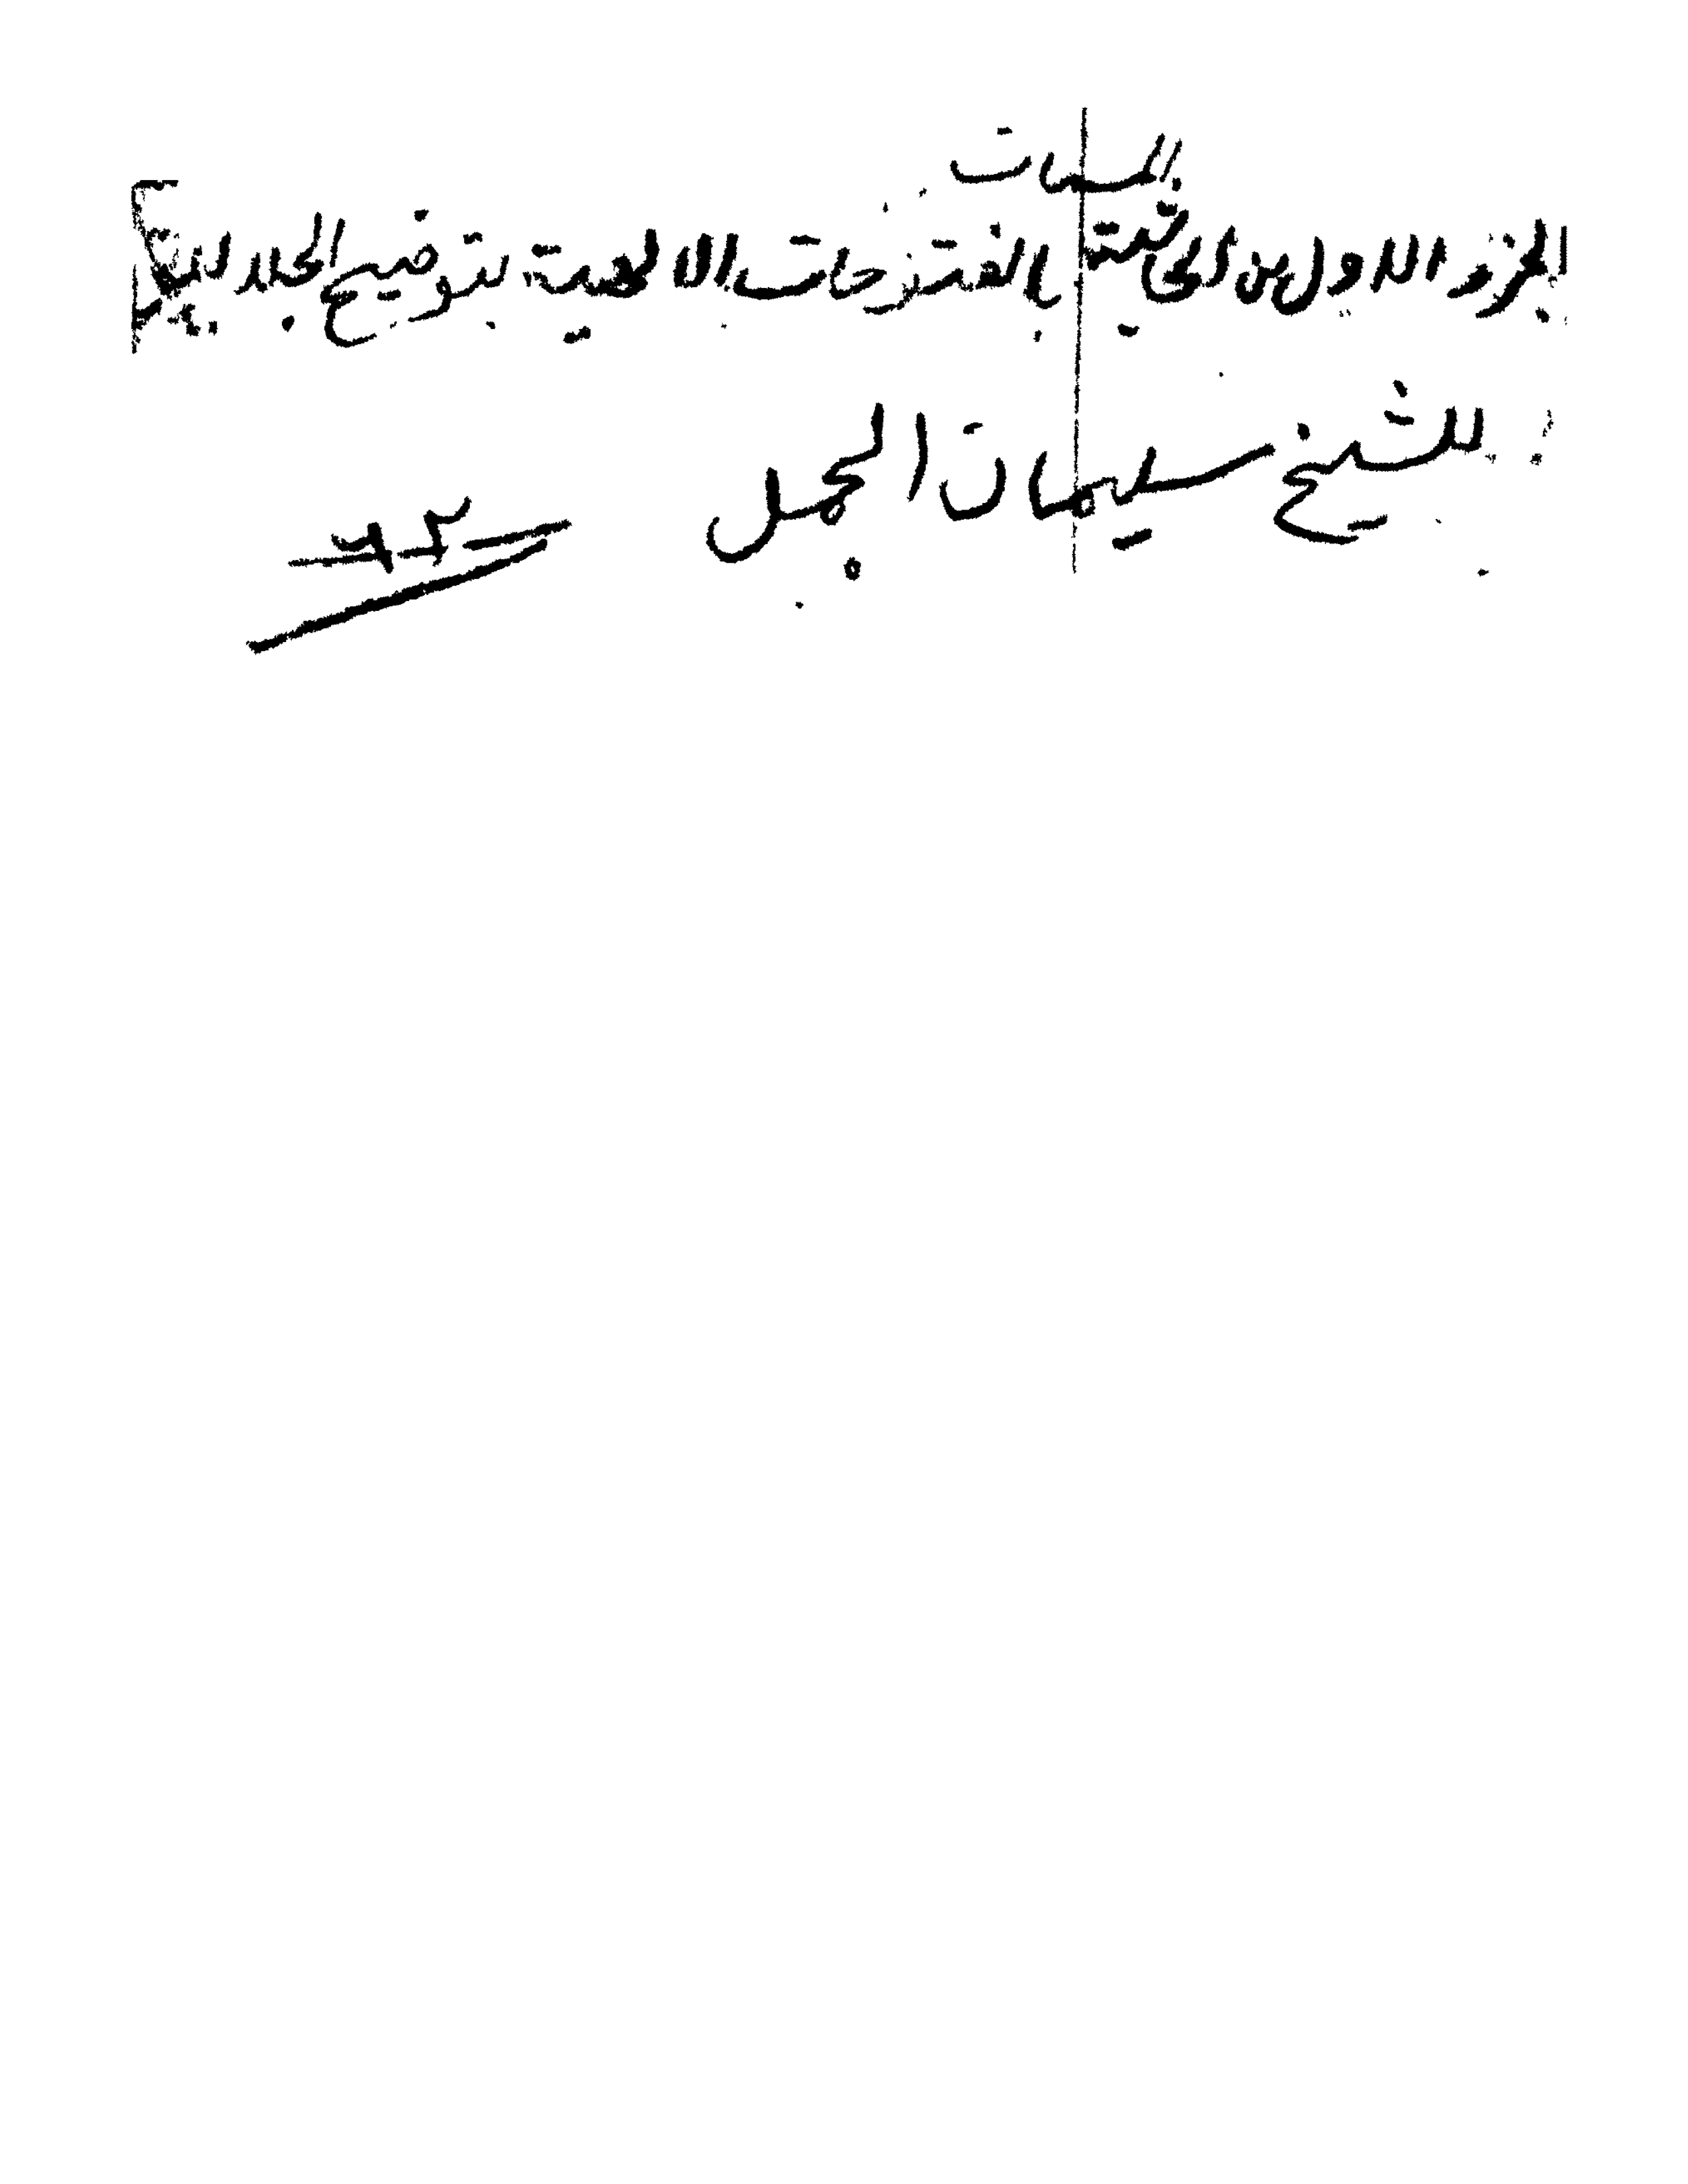 المسمات
الجزء الاول من الحاشية بالفتوحات الالهية بتوضيح الجلالين
للشيخ سليمان الجمل